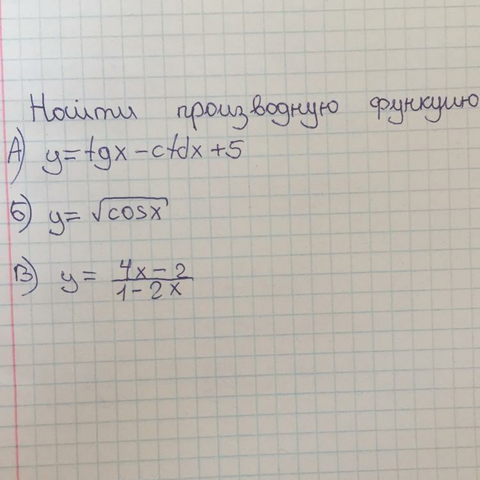 Найти производную функцию
А) y=tgx-ctdx+5
Б) y=√cosx
В) y= 4x-2/1-2x